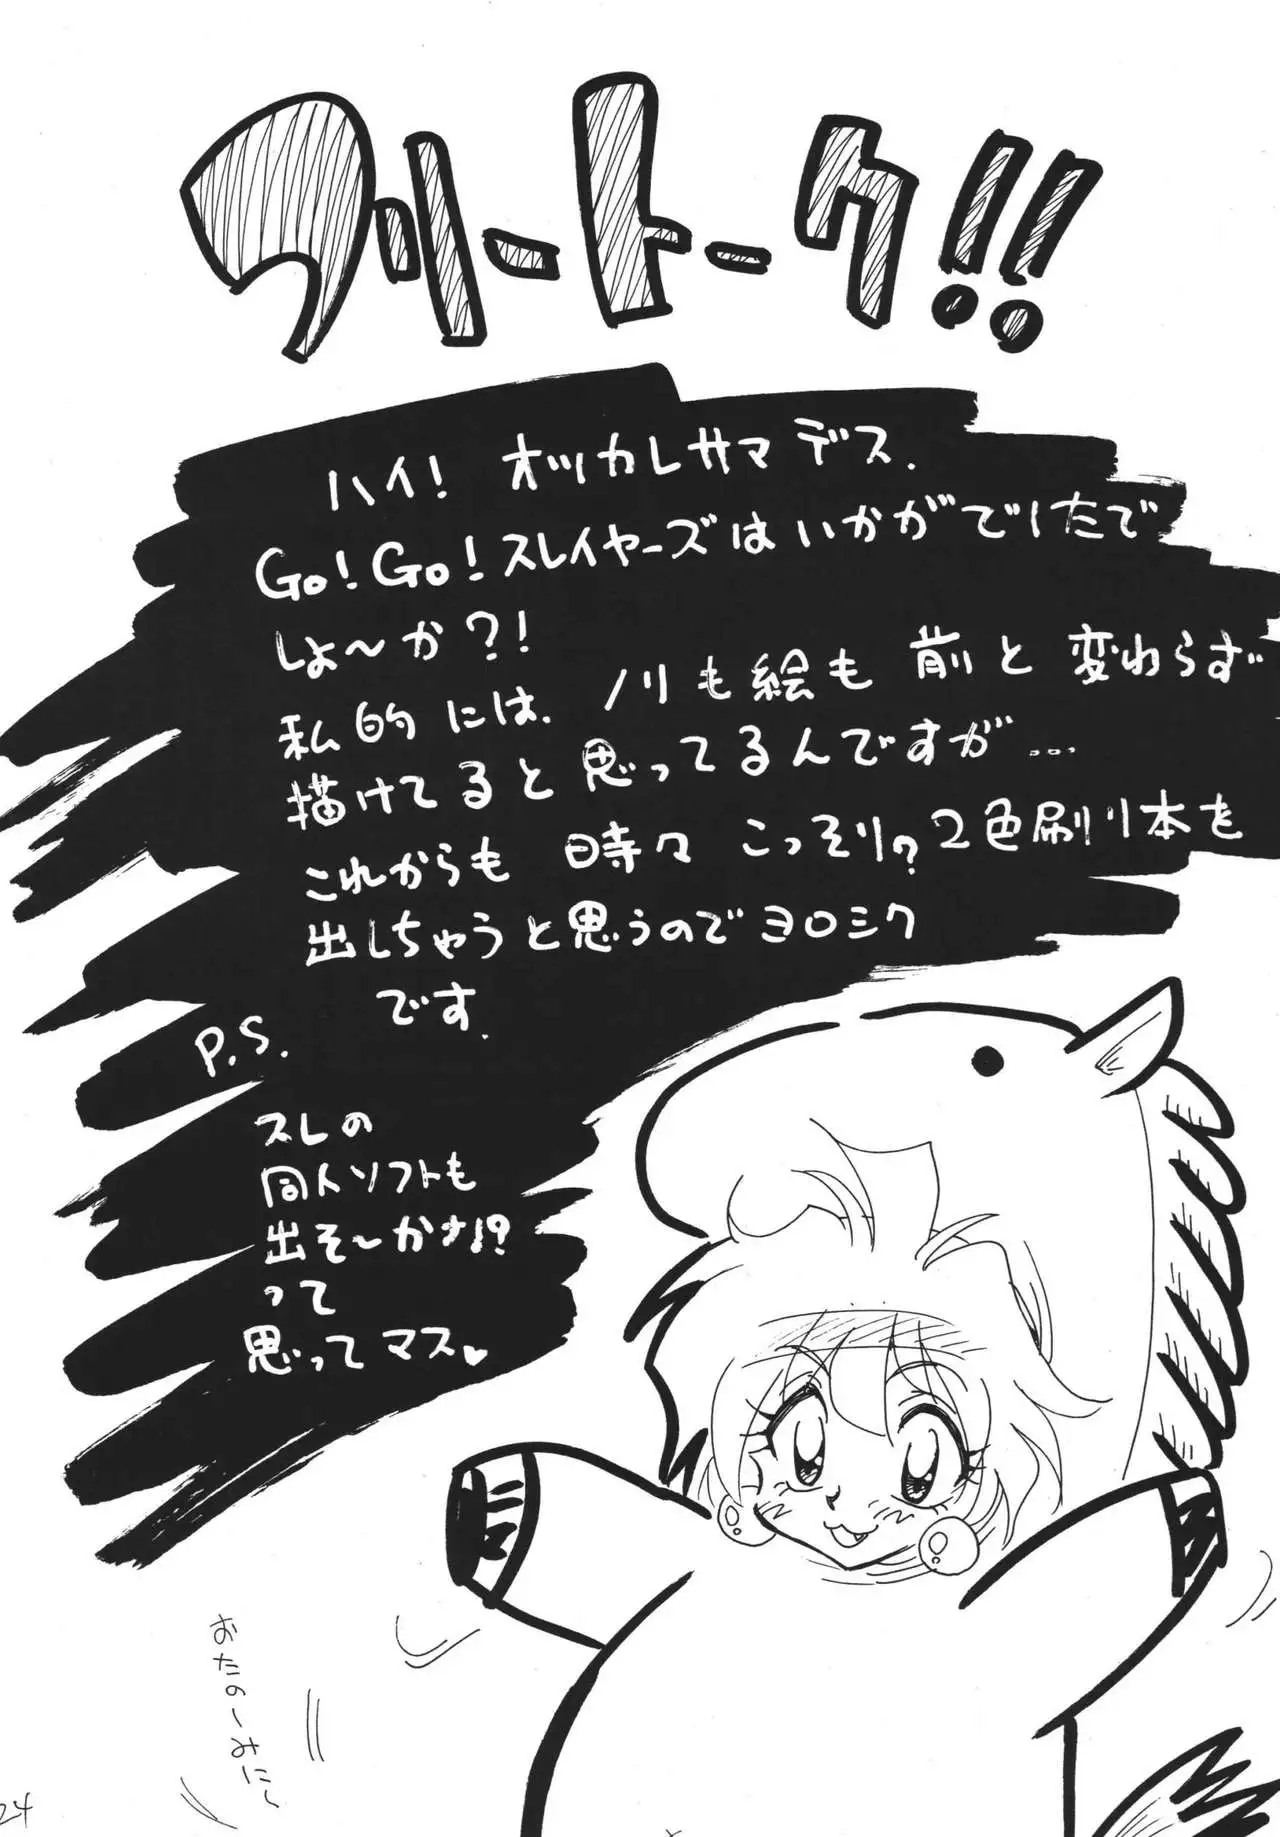 フリートーク!!
ハイ! オツカレサマデス.
Go!Go!スレイヤーズはいかがでしたで
しょ〜か?!
私的には、ノリも絵も前と変わらず
描けてると思ってるんですが…
これからも時々こっそり?2色刷り本を
出しちゃうと思うのでヨロシク
です.
P.S.
スレの
同人ソフトも
出そ〜かナ!?
って
思ってマス♥
おたの〜みに〜
24